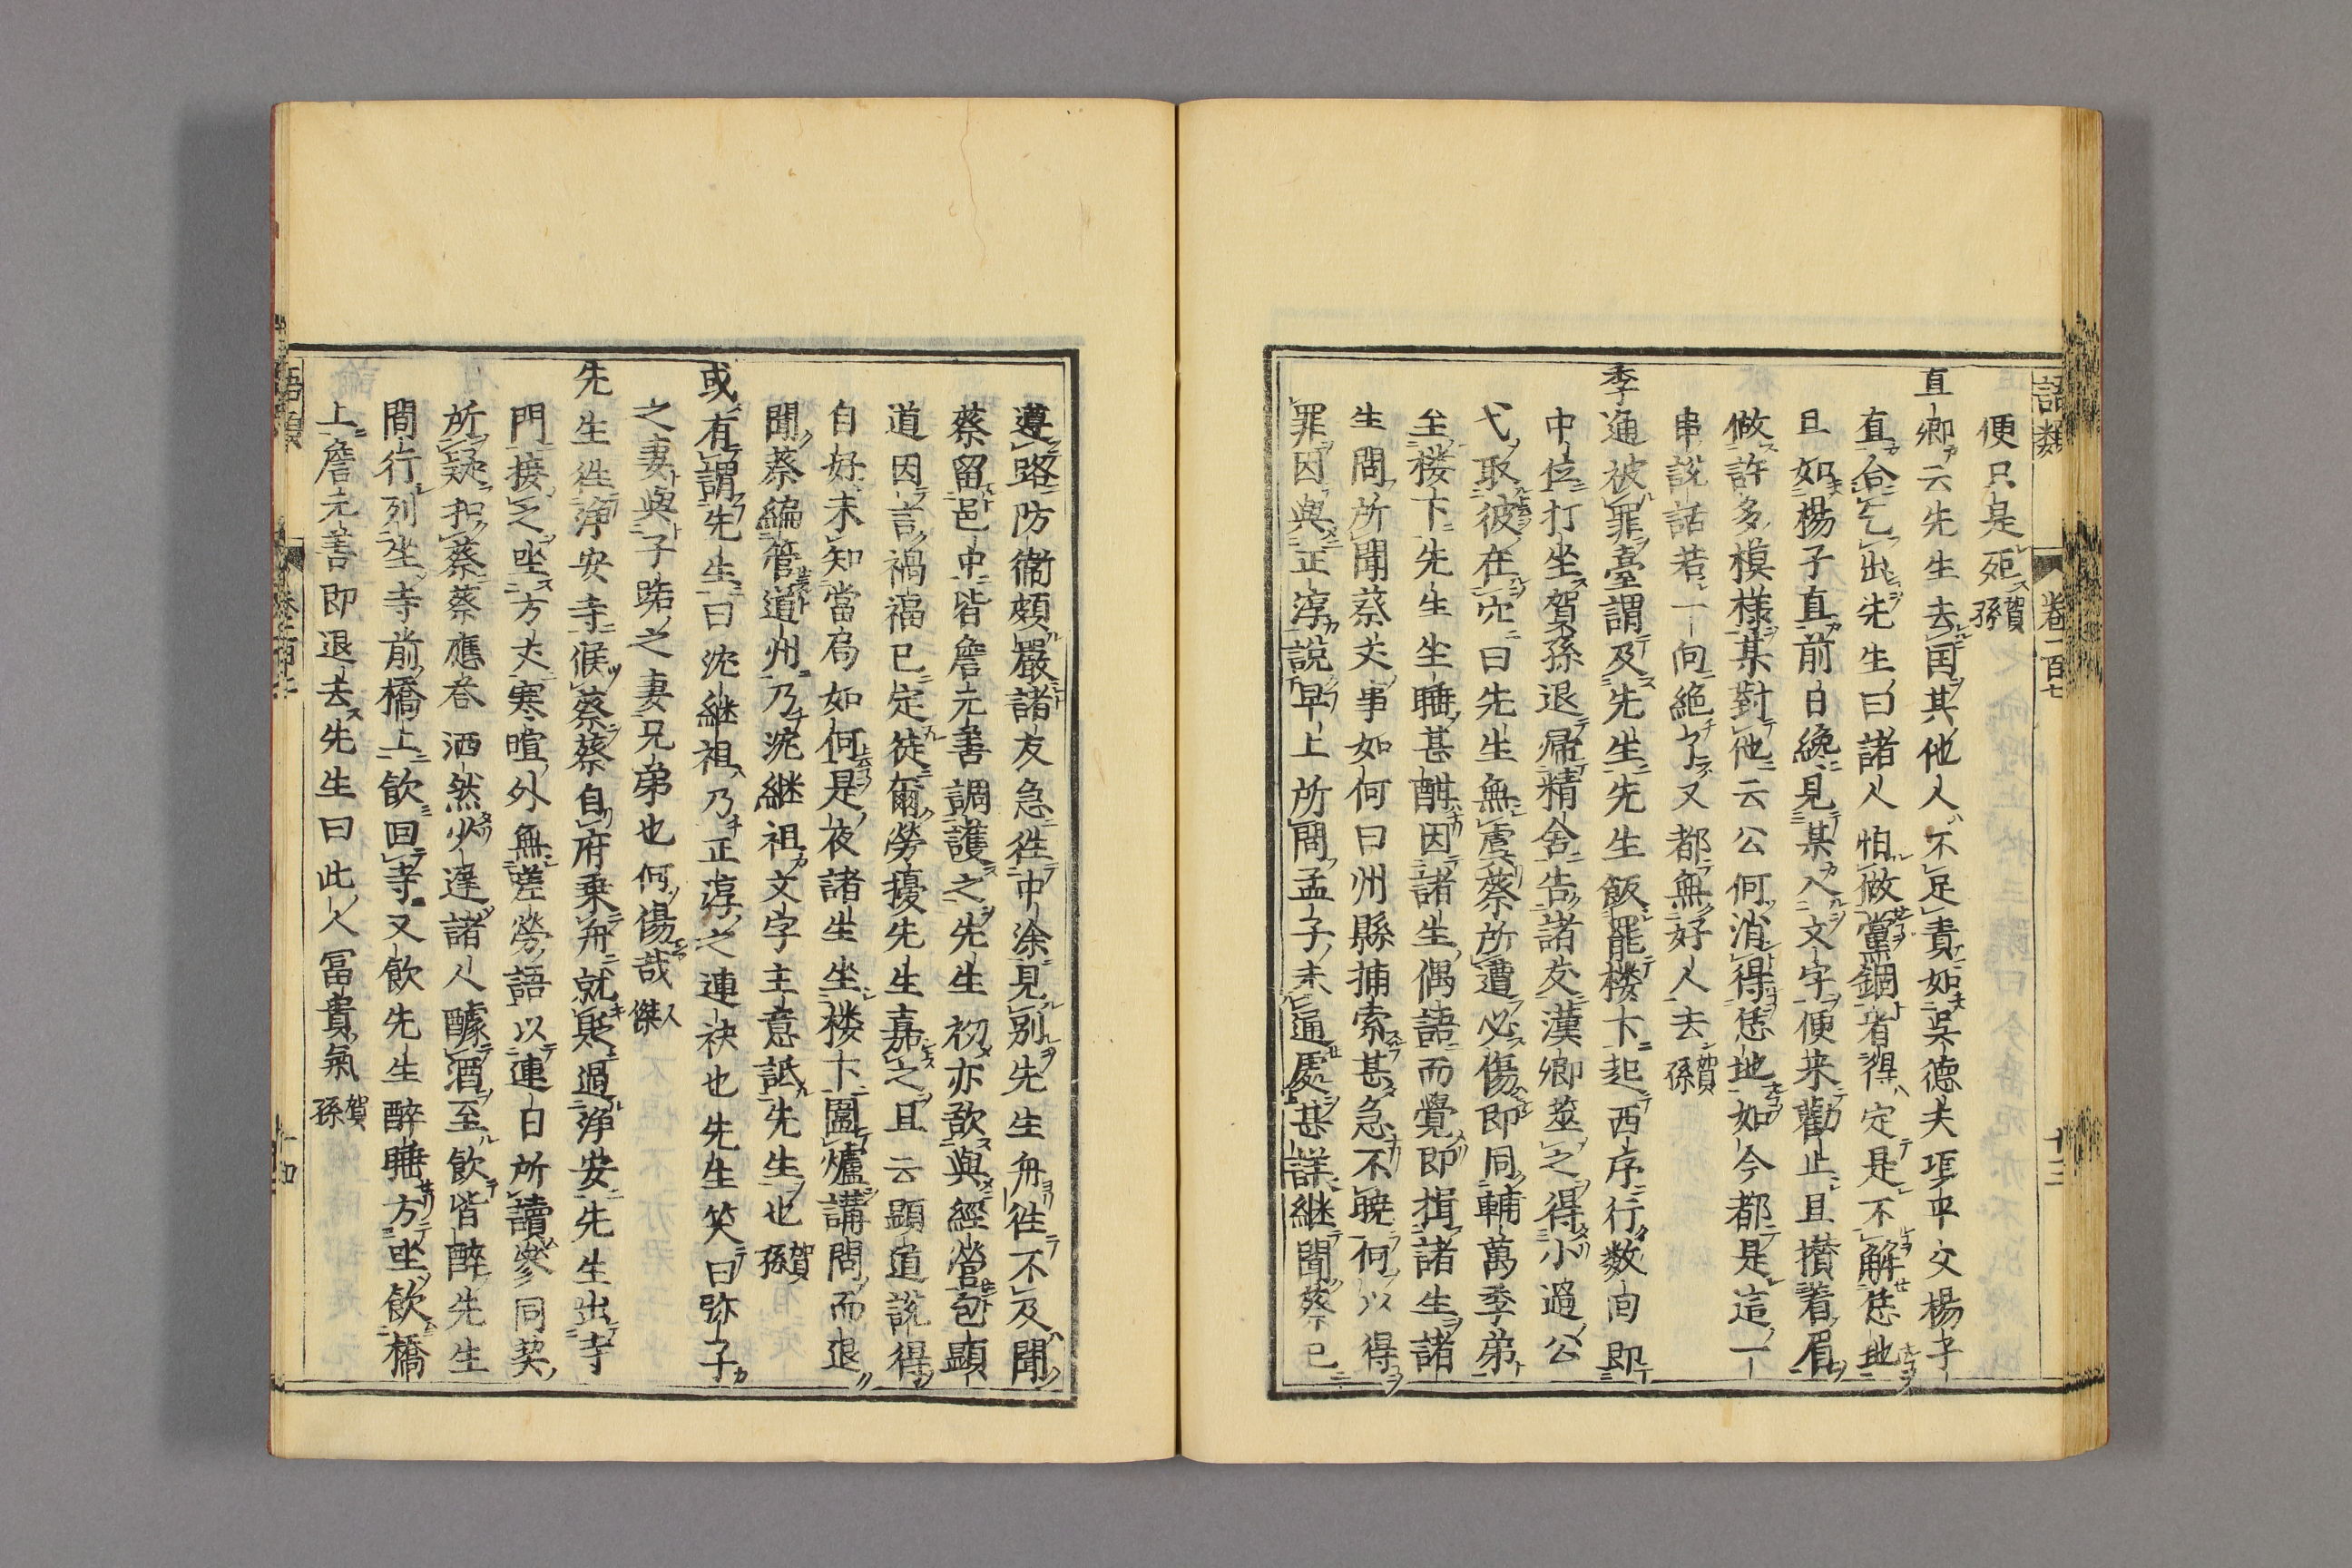 語類 卷一百七 十三
便只是死賀孫
直卿云先生去国其他人不足責如呉徳夫項平父楊子
直合乞出先生曰諸人怕做黨錮者得定是不解恁地
且如楊子直前日纔見某入文字便来勸止且攢着眉
做許多模様某對他云公何消得恁地如今都是這一
串說話若一向絶了又都無好人去賀孫
季通被罪臺謂及先生先生飯罷楼下起西序行数囬即
中位打坐賀孫退帰精舎告諸友漢卿筮之得小過公
弋取彼在穴曰先生無虞蔡所遭必傷即同輔萬季弟
至楼下先生坐睡甚酣因諸生偶語而覺即揖諸生諸
生問所聞蔡丈事如何曰州縣捕索甚急不曉何以得
罪因與正淳説早上所問孟子未通處甚詳継聞蔡已
遵路防衛頗嚴諸友急徃中途見別先生舟徃不及聞
蔡留邑中皆詹元善調護之先生初亦欲與經營包顕
道因言禍福已定徒爾勞擾先生嘉之且云顕道說得
自好未知當局如何是夜諸生坐楼下圍爐講問而退
聞蔡編管道州乃沈継祖文字主意詆先生也賀孫
或有謂先生曰沈継祖乃正淳之連袂也先生笑曰弥子
之妻與子路之妻兄弟也何傷哉人傑
先生徃浄安寺候蔡蔡自府乗舟就貶過浄安先生出寺
門接之坐方丈寒暄外無嗟勞語以連日所讀參同契
所疑扣蔡蔡應答洒然少遲諸人醵酒至飲皆醉先生
間行列坐寺前橋上飲回寺又飲先生醉睡方坐飲橋
上詹元善即退去先生曰此人富貴氣賀孫
語類 卷一百七 十四